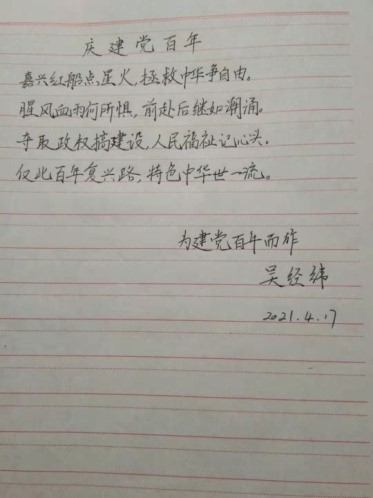 庆建党百年
嘉兴红船点星火，拯救中华争自由。
腥风血雨何所惧，前赴后继如潮涌。
夺取政权搞建设，人民福祉记心头。
仅此百年复兴路，特色中华世一流。
为建党百年而作
吴经纬
2021.4.17